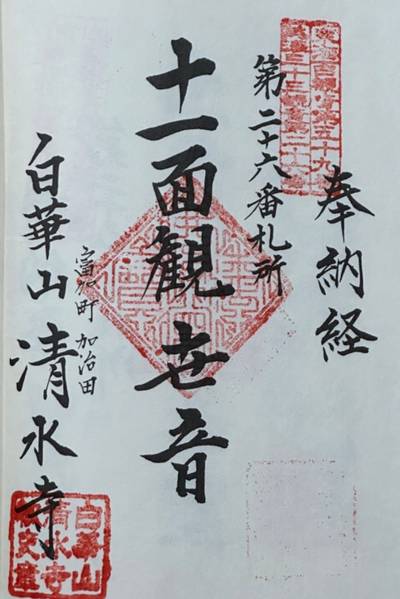 奉納経
第二十六番札所
十一面観世音
富加町 加治田
白華山清水寺
白華山
清水寺